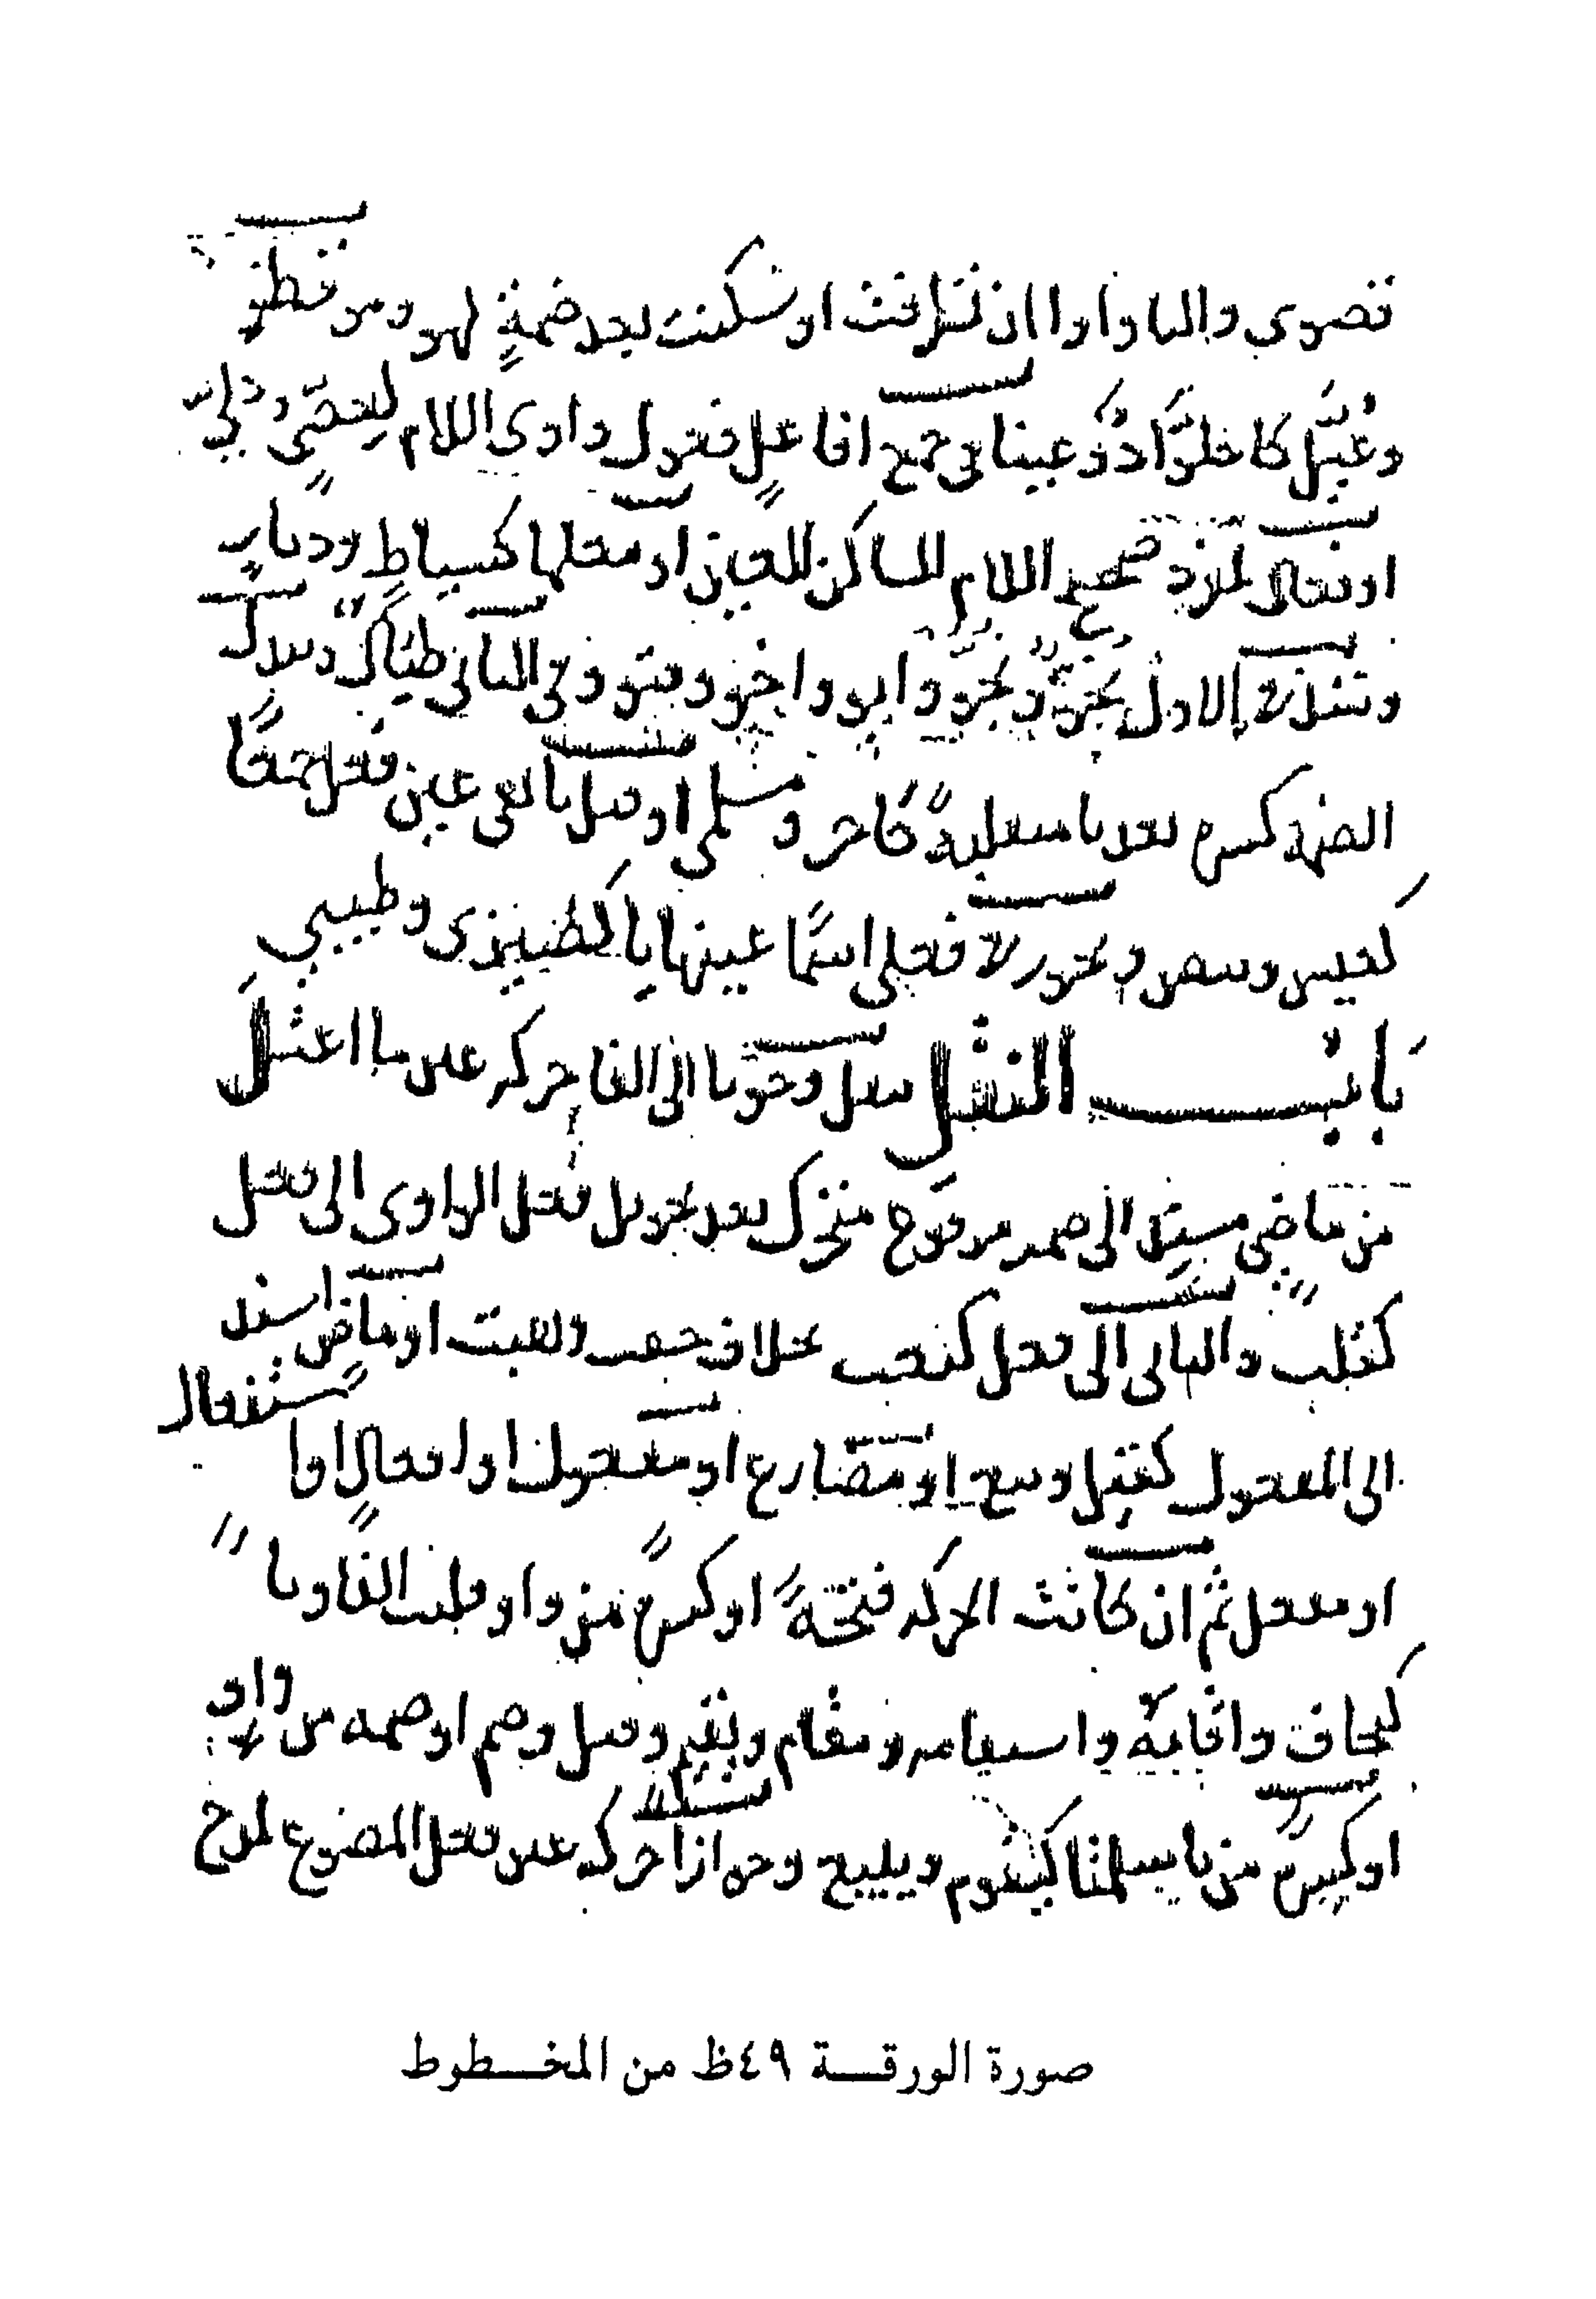 قصوى والياء واوا ان تطرفت او سكنت بعد ضمةٍ لهو وموقظو
وعُيِّل كاخلوّا ذو عينا في جمع افاعل فعول واوى اللام لعصيّ ودليّ
او فعال لمفرد صحيح اللام الساكن العين او معلها كسياطٍ وديارٍ
الاول وابو واخو وفي الثاني
الضمة كسرة بعد يا او قبل يا تلي عين فعل جمعًا
كعيس وبيض لا فعلى اسمًا عينها يا كضيزى وطيبى
بابُ النقل ينقل وجوبا الى الفا حركه عين ما اعتل
من ماضٍ مسند الى ضمير مرفوع متحرك بعد تحويل فعل الواوى الى فعل
كقلت واليائى الى فعل كبعت بخلاف خفت وهبت او ماضٍ اسند
الى المفعول كقيل وبيع او مضارع او مفعول او افعالٍ او استفعال
او مفعل ثم ان كانت الحركه فتحةً او كسرةً من واو قلبت الفا ويا
كيخاف واقامة واستقامه ومقام ويقيم وقيل وضم او ضمه من واو
او كسرة من يا سلمتا كيقوم ويبيع وجوازا حركه عين فعل المصوغ لمدح
صورة الورقة ٤٩ظ من المخطوط